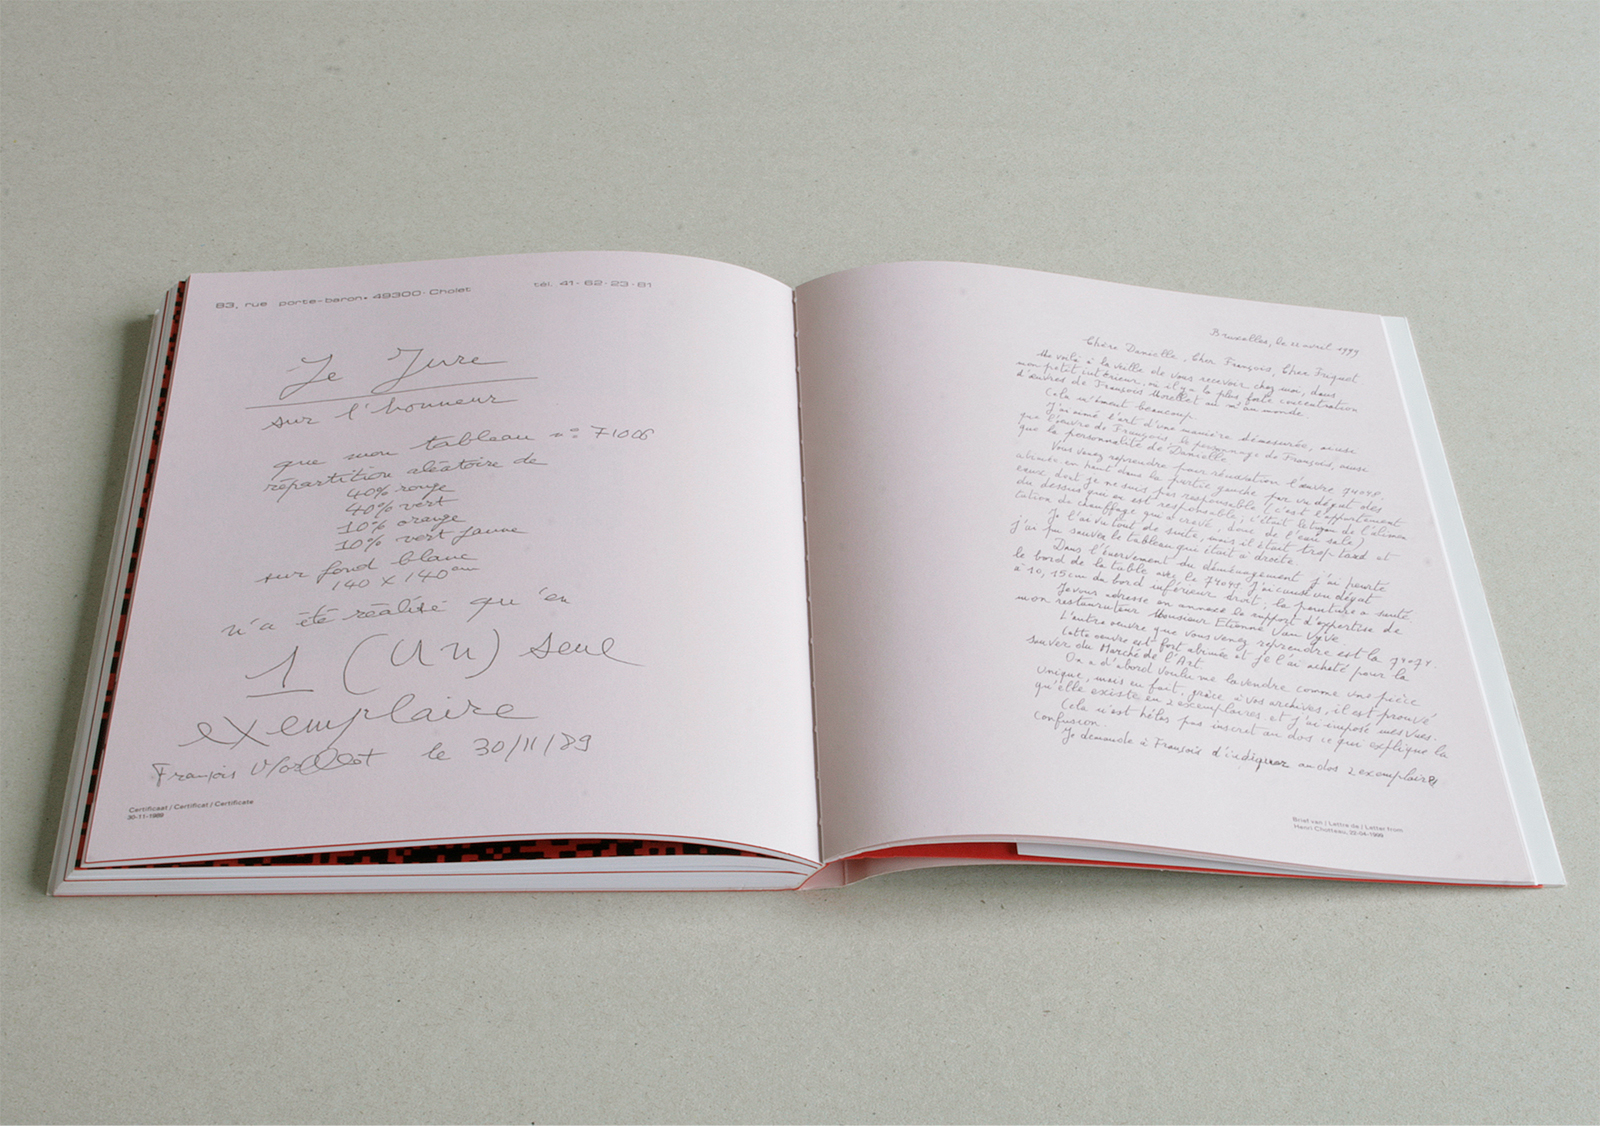 83, rue porte-baron. 49300. Cholet
tél. 41.62.23.81
Je Jure
sur l'honneur
que mon tableau n° 71006
répartition aléatoire de
40% rouge
40% vert
10% orange
10% vert jaune
sur fond blanc
140 x 140 cm
n'a été réalisé qu'en
1 (un) seul
exemplaire
François Morellet le 30/11/89
Certificaat / Certificat / Certificate
30-11-1989
Bruxelles, le 22 avril 1999
Chère Danielle, Cher François, Cher Friquet
Me voilà à la veille de vous recevoir chez moi, dans
mon petit intérieur, où il y a la plus forte concentration
d'œuvres de François Morellet au m² au monde.
Cela m'émeut beaucoup
J'ai aimé l'art d'une manière démesurée, aussi
que l'œuvre de François, le personnage de François, aussi
que la personnalité de Danielle.
Vous venez reprendre pour réédition l'œuvre 74048.
abîmée en haut dans la partie gauche par un dégat des
eaux dont je ne suis pas responsable (c'est l'appartement
du dessus qui en est responsable, c'était le tuyau de l'alimen
tation du chauffage qui a crevé, donc de l'eau sale)
Je l'ai vu tout de suite, mais il était trop tard et
j'ai pu sauver le tableau qui était à droite.
Dans l'énervement du déménagement j'ai heurté
le bord de la table avec la 74049 j'ai causé un dégat
à 10, 15cm du bord inférieur droit; la peinture a sauté
Je vous adresse en annexe le rapport d'expertise de
mon restaurateur Monsieur Etienne Van Vyve
L'autre œuvre que vous venez reprendre est la 74074.
Cette œuvre est fort abîmée et je l'ai acheté pour la
sauver du Marché de l'Art.
On a d'abord voulu me la vendre comme une pièce
unique, mais en fait, grâce à vos archives, il est prouvé
qu'elle existe en 2 exemplaires et j'ai imposé mes vues.
Cela n'est hélas pas inscrit au dos ce qui explique la
confusion.
Je demande à François d'indiquer au dos 2 exemplaires
Brief van / Lettre de / Letter from
Henri Chotteau, 22-04-1999